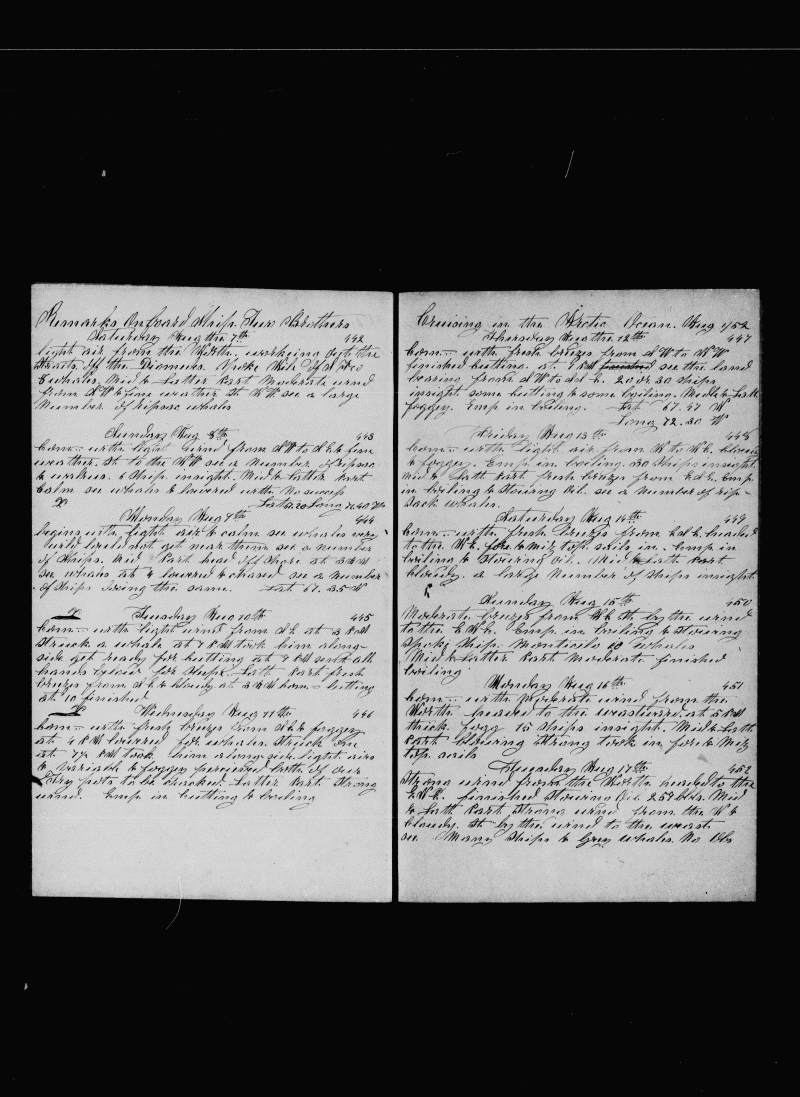 Remarks On board Ship Two Brothers
Saturday Aug the 7th 442
light air from the North. working out the
Straits of the Diomens. Spoke
whales. Mid & Latter Part Moderate wind
from & fine weather St see a large
Number of ripsac whales
Sunday Aug 8th 443
Com-- with light wind from to & fine
weather. St to the see a Number of ripsac
& walrus. 6 Ships insight. Mid & Latter Part
Calm see whales & lowered with No success
Long
Monday Aug 9th 444
begins with light air & calm see whales very
wild could not get near them see a number
of Ships. Mid Part head off Shore at 3 AM
see whales at 4 lowered & chased see a Number
of Ships doing the same. Lat 67. 35 N
Tuesday Aug 10th 445
Com-- with light wind from at 3 PM
Struck a whale at 7 PM took him along-
side got ready for cutting at 9 PM sent all
hands below for Sleep. Latt Part fresh
breezes from & cloudy at 3 AM com-- cutting
at 10 finished
Wednesday Aug 11th 446
Com-- with fresh breezes from & foggey
at 4 PM lowered for whales Struck one
at 7½ PM took him along side. light airs
& Variable & foggey perceived both of our
Try pots to be cracked. Latter Part Strong
wind. Emp in cutting & boiling
Cruising in the Arctic Ocean. Aug 1852
Thursday Aug the 12th 447
Com-- with fresh breezes from to
finished cutting. at PM finished see the land
bearing from to 20 or 30 Ships
insight some cutting & some boiling. Middle & Latt
foggey. Emp in boiling. Lat 67. 47 N
Long 172. 30 W
Friday Aug 13th 448
Com-- with light air from to cloudy
& foggey. Emp in boiling. 30 Ships insight.
Mid & Latt Part fresh breezes from Emp
in boiling & Stowing Oil. see a Number of rip-
sack whales.
Saturday Aug 14th 449
Com-- with fresh breezes from headed
to the fore & Miz topt sails in. Emp in
boiling & Stowing Oil. Mid & Latt Part
cloudy. a large Number of Ships insight
Sunday Aug 15th 450
Moderate breezes from St by the wind
to the Emp in boiling & Stowing
Spoke Ship Monticelo 10 whales
Mid & Latter Part Moderate finished
boiling
Monday Aug 16th 451
Com-- with Moderate wind from the
North headed to the weastward. at 5 PM
thick fogg 15 Ships insight. Mid & Latt
Part blowing Strong took in fore & Miz
top sails
Tuesday Aug 17th 452
Strong wind from the North headed to the
finished Stowing Oil 259 bbls. Mid
& Latt Part Strong wind from the &
cloudy. St by the wind to the weast
see Many Ships & Grey whales No Obs